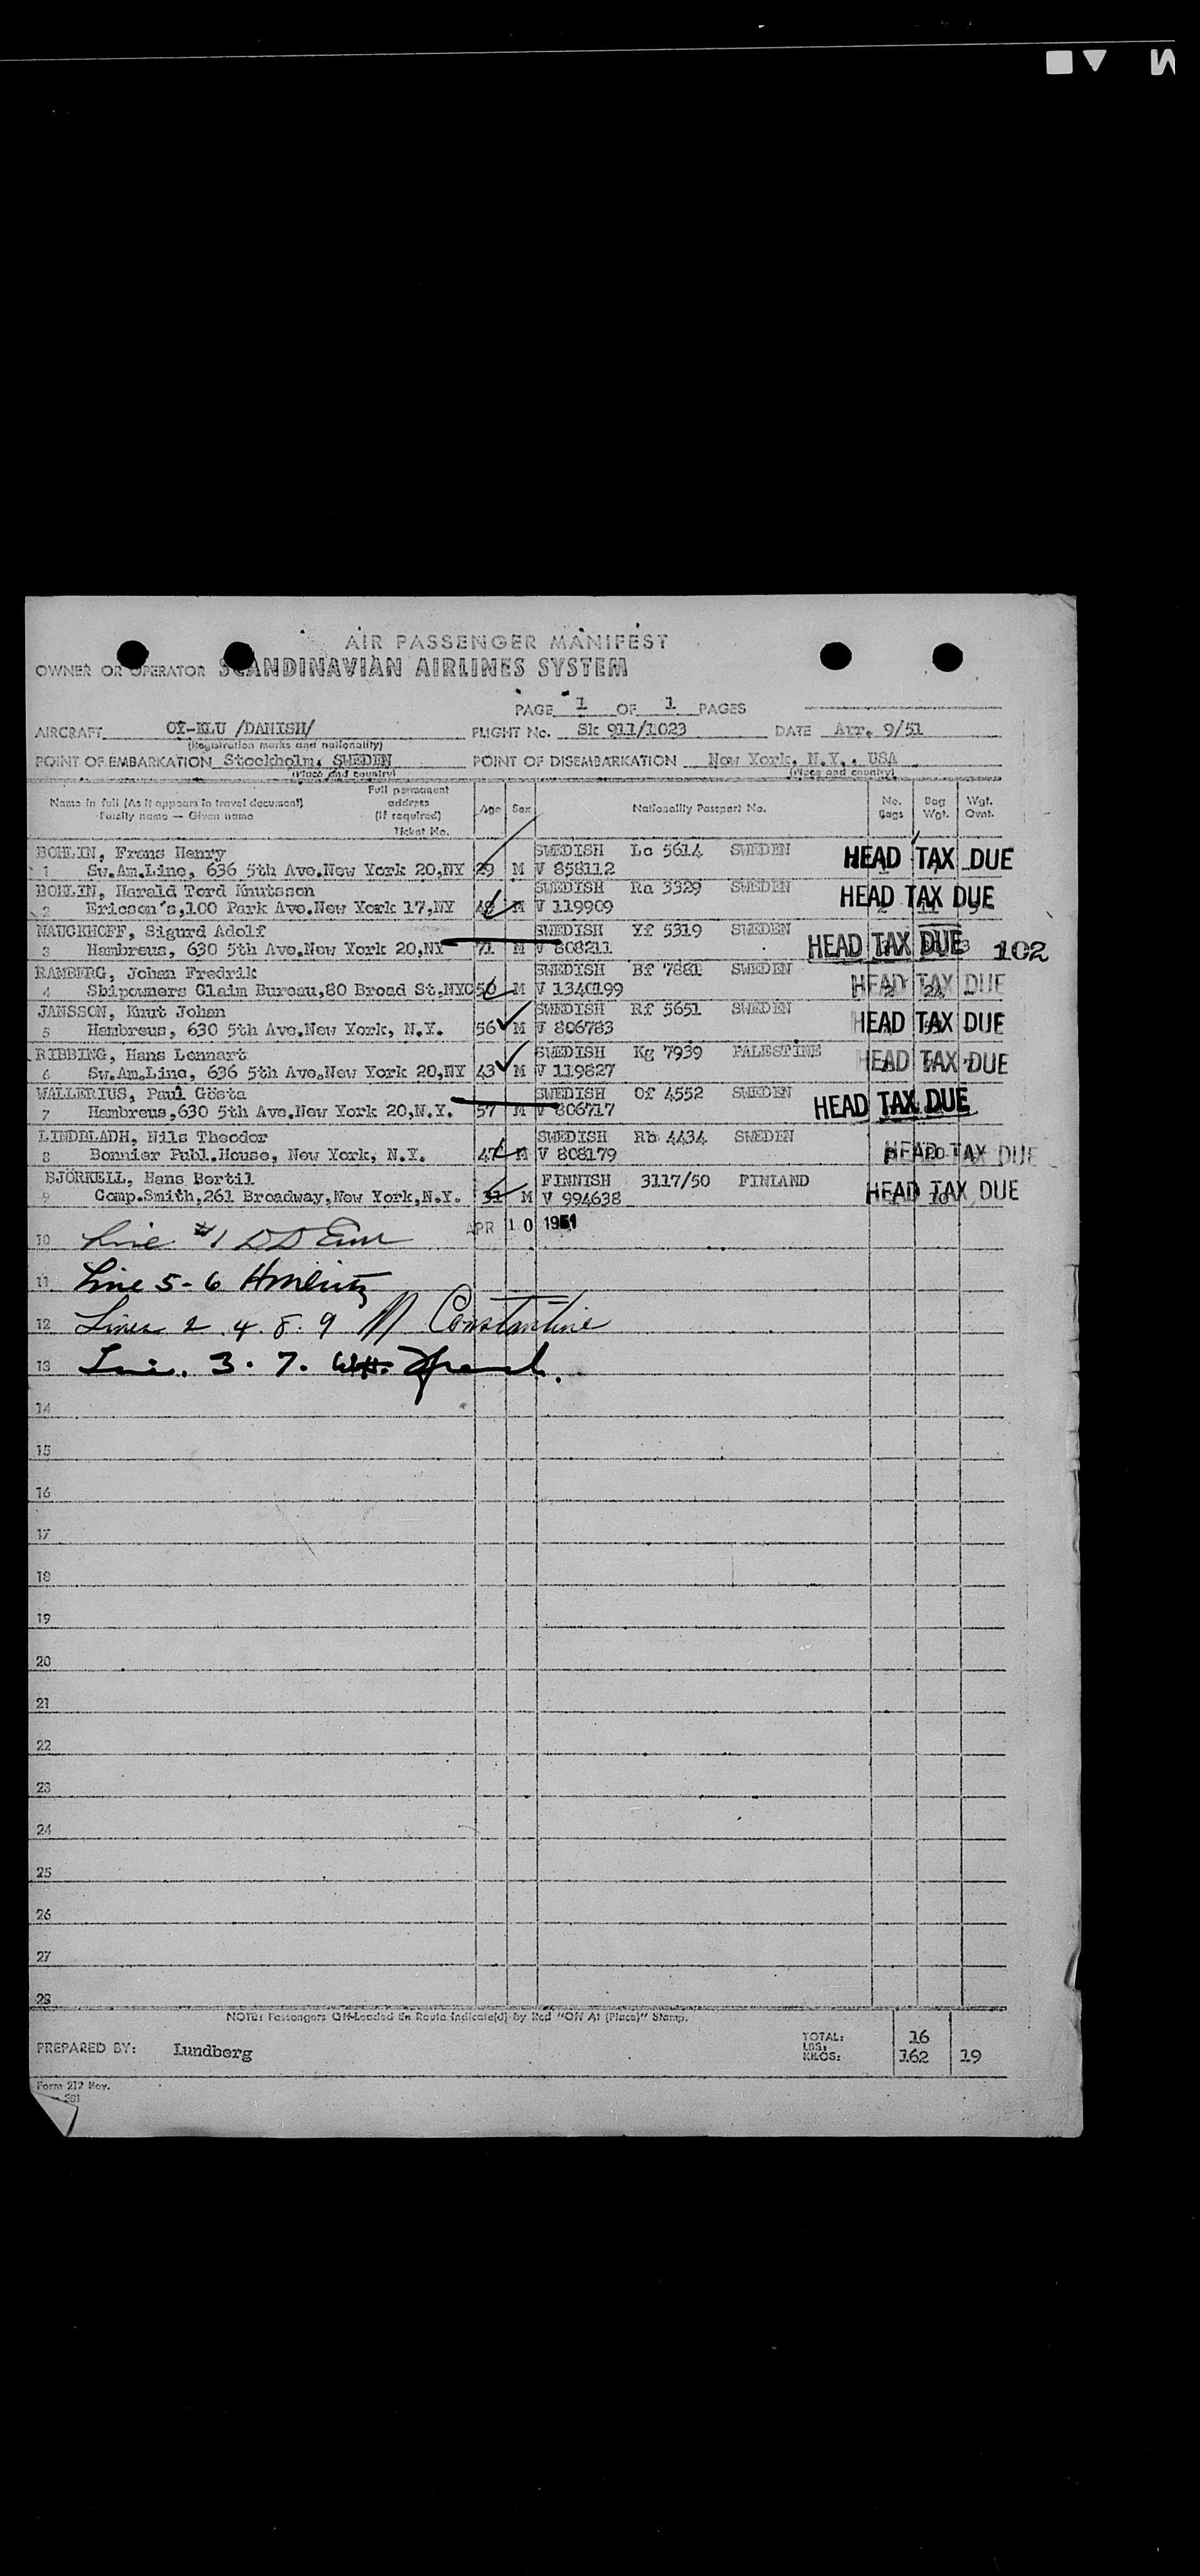 AIR PASSENGER MANIFEST
OWNER OR OPERATOR SCANDINAVIAN AIRLINES SYSTEM
PAGE 1 OF 1 PAGES
AIRCRAFT OY-KLU /DANISH/ FLIGHT No. Sk 911/1023 DATE Arr. 9/51
(Registration marks and nationality)
POINT OF EMBARKATION Stockholm, SWEDEN POINT OF DISEMBARKATION New York, N.Y., USA
(Place and country) (Place and country)
Name in full (As it appears in travel document) Full permanent address (if required) Age Sex Nationality Passport No. No. Bags Bag Wgt. Wgt. Ovnt.
Family name — Given name Ticket No.
BOHLIN, Frans Henry SWEDISH Lc 5614 SWEDEN HEAD TAX DUE
1 Sw.Am.Line, 636 5th Ave.New York 20,NY 29 M V 858112
BOHLIN, Harald Tord Knutsson SWEDISH Ra 3329 SWEDEN HEAD TAX DUE
2 Ericson's,100 Park Ave.New York 17,NY M V 119909
NAUCKHOFF, Sigurd Adolf SWEDISH Yf 5319 SWEDEN
3 Hambreus, 630 5th Ave.New York 20,NY 71 M V 808211 HEAD TAX DUE 102
RAMBERG, Johan Fredrik SWEDISH Bf 7881 SWEDEN
4 Shipowners Claim Bureau,80 Broad St.NYC 50 M V 1340199 HEAD TAX DUE
JANSSON, Knut Johan SWEDISH Rf 5651 SWEDEN
5 Hambreus, 630 5th Ave.New York, N.Y. 56 M V 806783 HEAD TAX DUE
RIBBING, Hans Lennart SWEDISH Kg 7939 PALESTINE
6 Sw.Am.Line, 636 5th Ave.New York 20,NY 43 M V 119827 HEAD TAX DUE
WALLERIUS, Paul Gösta SWEDISH Of 4552 SWEDEN
7 Hambreus,630 5th Ave.New York 20,N.Y. 57 M V 806717 HEAD TAX DUE
LINDBLADH, Nils Theodor SWEDISH Rb 4434 SWEDEN
8 Bonnier Publ.House, New York, N.Y. M V 808179 HEAD TAX DUE
BJÖRKELL, Hans Bertil FINNISH 3117/50 FINLAND
9 Comp.Smith,261 Broadway,New York,N.Y. 31 M V 994638 HEAD TAX DUE
APR 10 1951
10 Line #1
11 Line 5-6
12 Lines 2. 4. 8. 9 Constantine
13 3. 7.
14
15
16
17
18
19
20
21
22
23
24
25
26
27
28
NOTE: Passengers Off-Loaded En Route Indicate(d) by Red "Off At (Place)" Stamp.
PREPARED BY: Lundberg
TOTAL: 16
LBS:
KILOS: 162 19
Form 212 Nov.